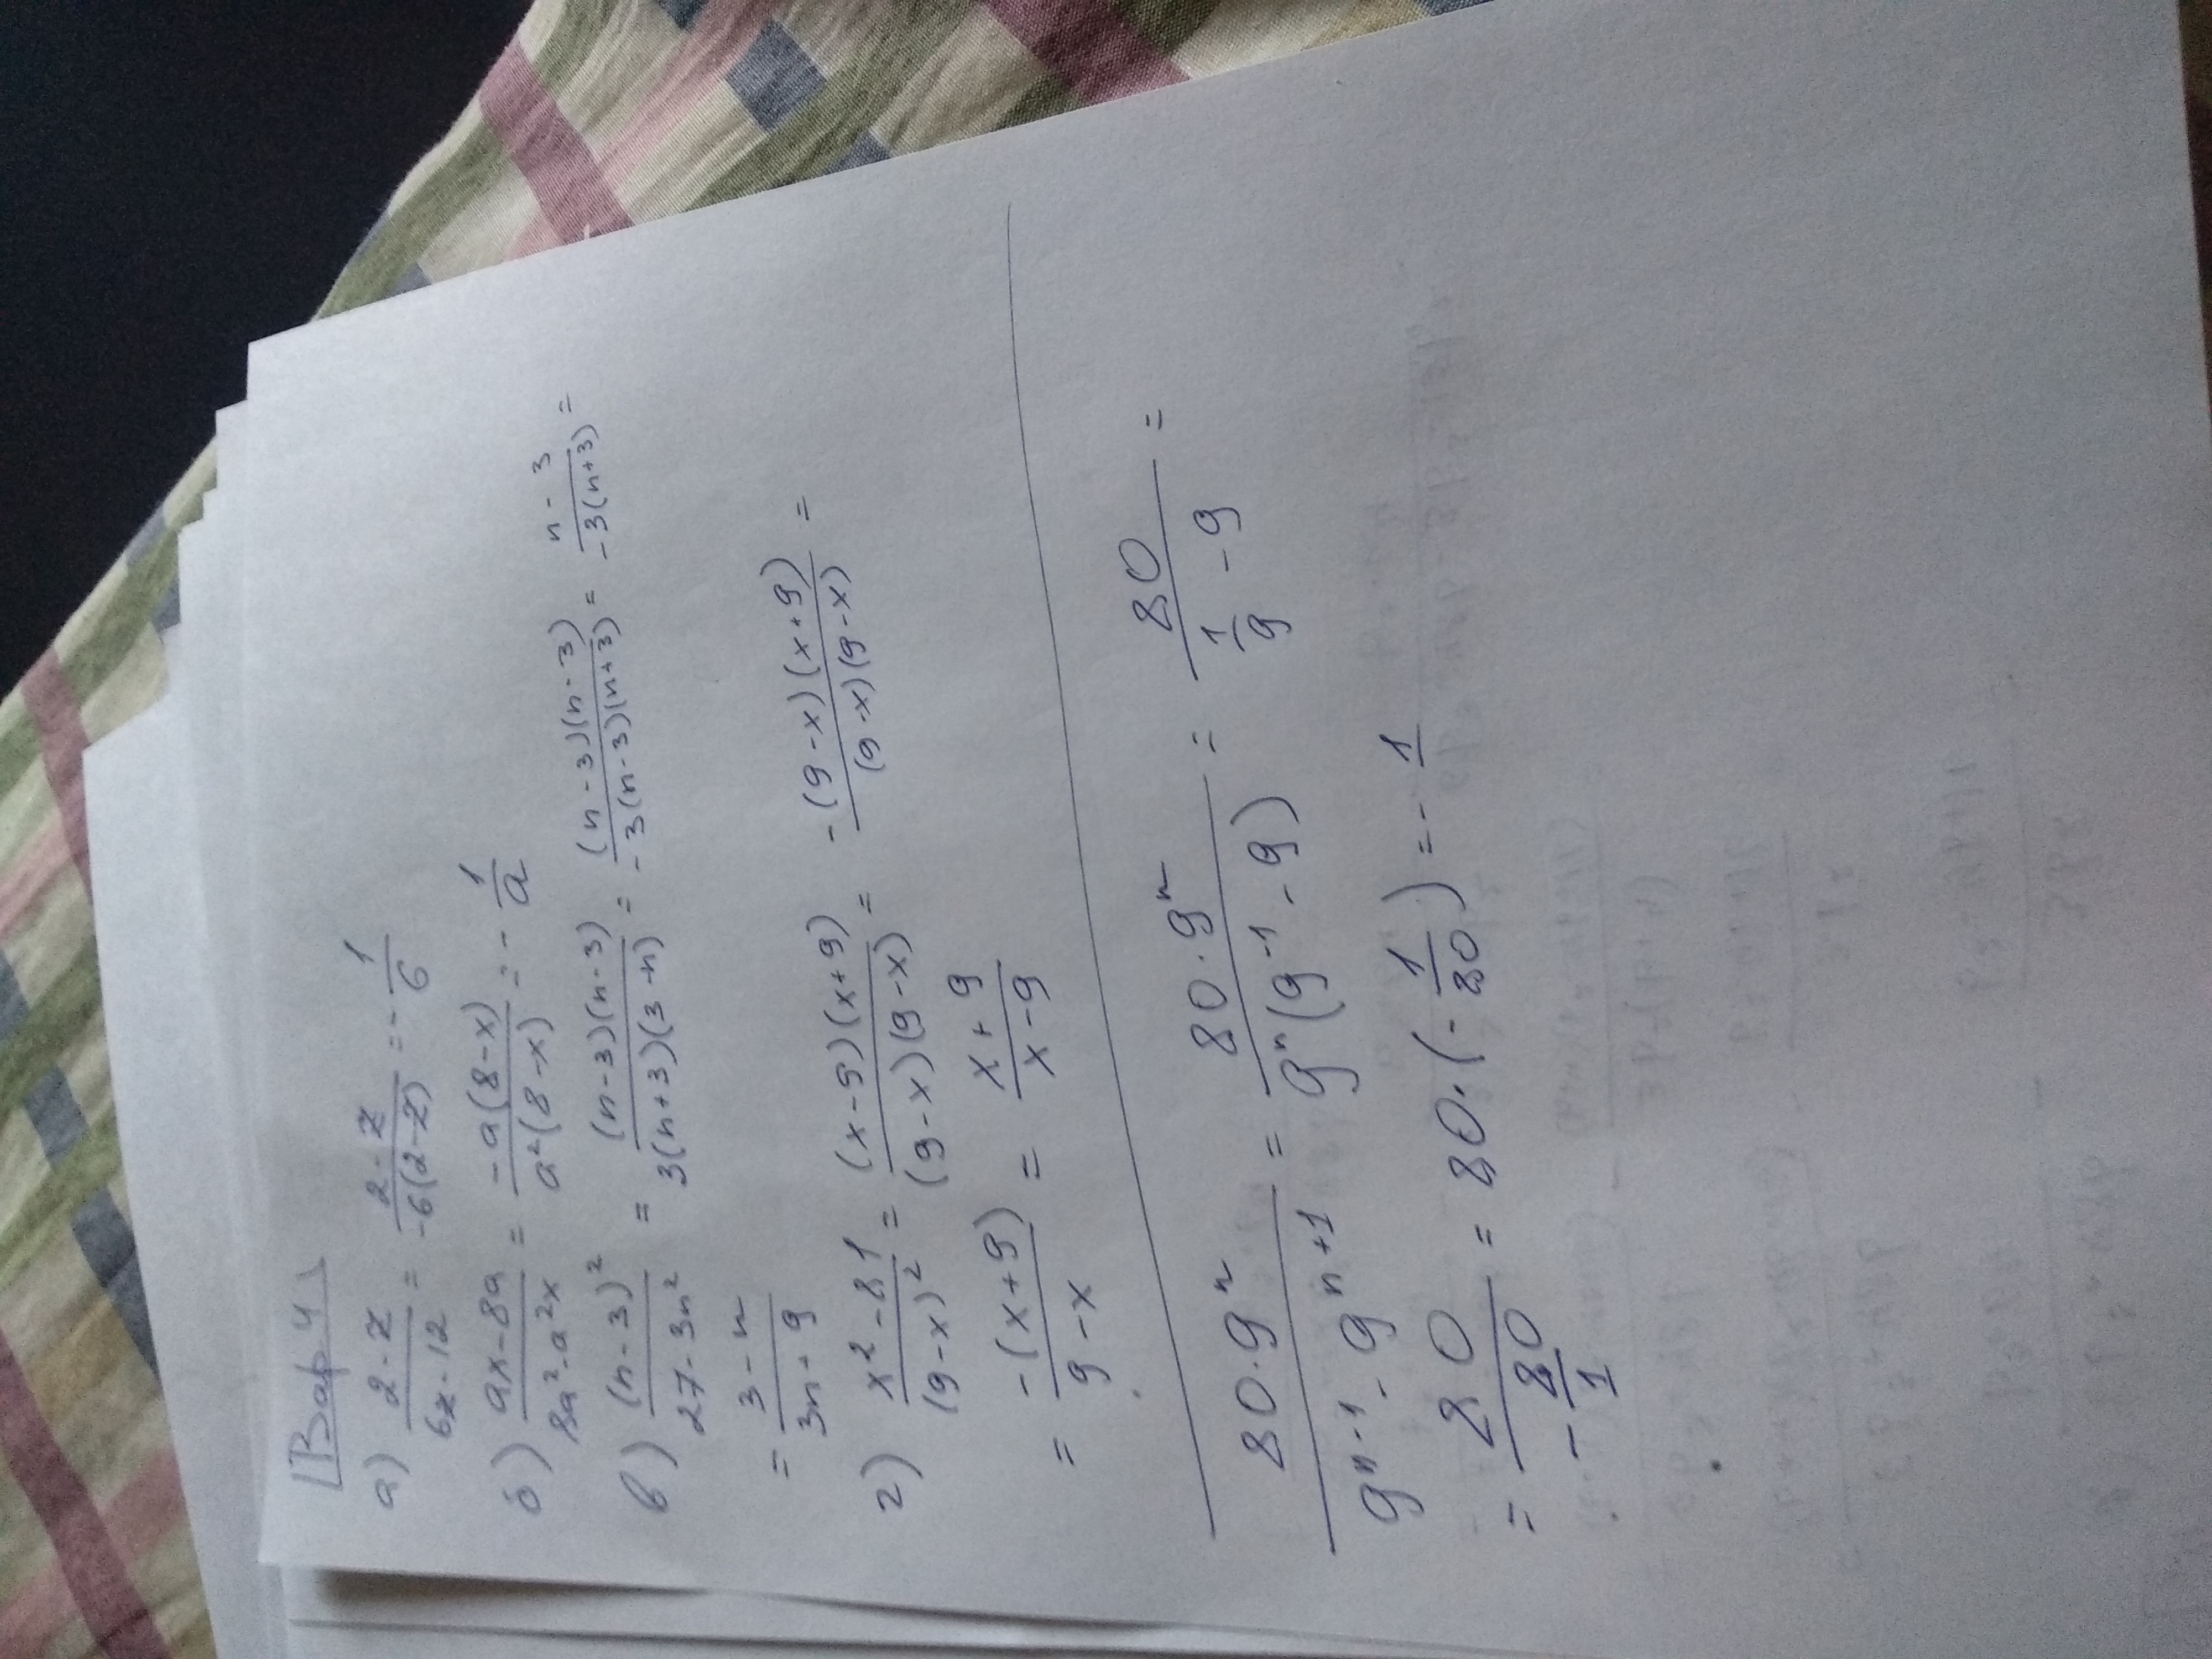 Вар 4
а) (2-z)/(6z-12) = (2-z)/(-6(2-z)) = -1/6
б) (ax-8a)/(8a²-a²x) = (-a(8-x))/(a²(8-x)) = -1/a
в) (n-3)²/(27-3n²) = ((n-3)(n-3))/(3(n+3)(3-n)) = ((n-3)(n-3))/(-3(n-3)(n+3)) = (n-3)/(-3(n+3)) =
= (3-n)/(3n-9)
г) (x²-81)/(9-x)² = ((x-9)(x+9))/((9-x)(9-x)) = (-(9-x)(x+9))/((9-x)(9-x)) =
= (-(x+9))/(9-x) = (x+9)/(x-9)
(80·9ⁿ)/(9ⁿ⁻¹-9ⁿ⁺¹) = (80·9ⁿ)/(9ⁿ(9⁻¹-9)) = 80/(1/9-9) =
= 80/(-80/1) = 80·(-1/80) = -1